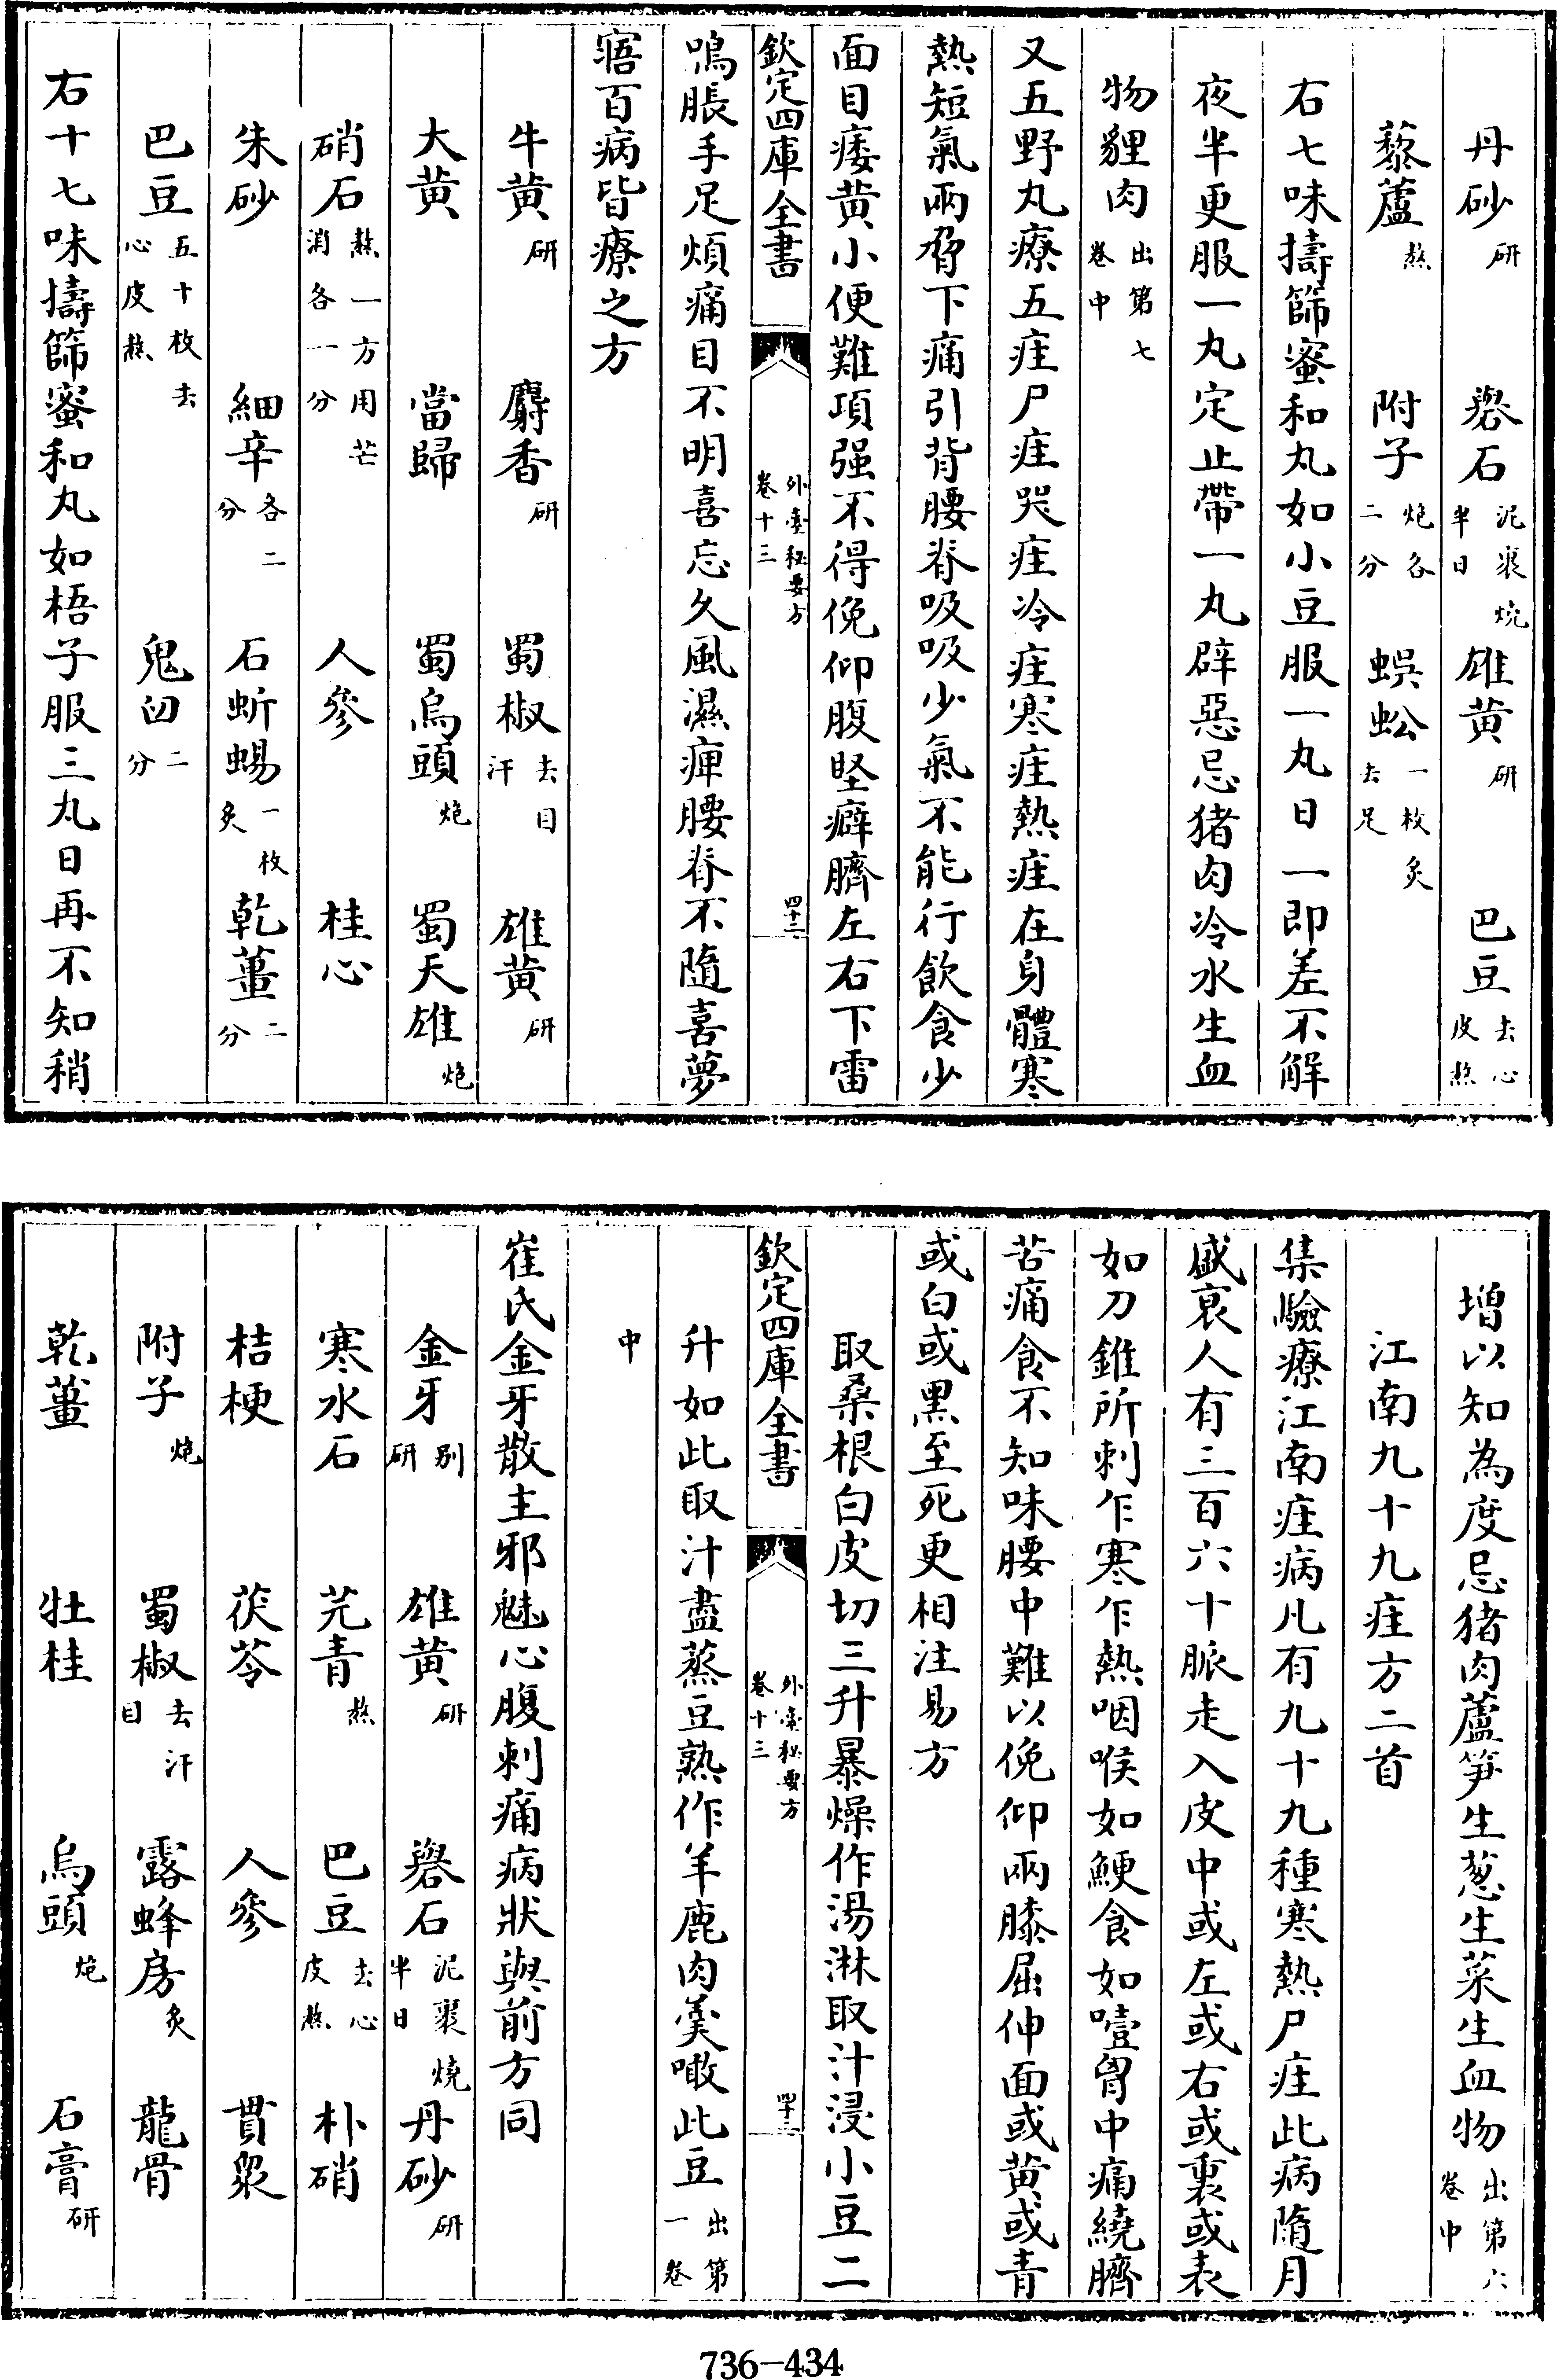 丹砂研 礜石泥裹燒半日 雄黄研 巴豆去心皮熬
藜蘆熬 附子炮各二分 蜈蚣一枚炙去足
右七味擣篩蜜和丸如小豆服一丸日一即差不解
夜半更服一丸定止帶一丸辟惡忌猪肉冷水生血
物貍肉出第七卷中
又五野丸療五疰尸疰哭疰冷疰寒疰熱疰在身體寒
熱短氣兩脅下痛引背腰脊吸吸少氣不能行飲食少
面目痿黄小便難項强不得俛仰腹堅癖臍左右下雷
欽定四庫全書 外臺秘要方卷十三 四十二
鳴脹手足煩痛目不明喜忘久風濕痺腰脊不隨喜夢
寤百病皆療之方
牛黄研 麝香研 蜀椒去目汗 雄黄研
大黄 當歸 蜀烏頭炮 蜀天雄炮
硝石熬一方用芒消各一分 人參 桂心
朱砂 細辛各二分 石蜥蜴一枚炙 乾薑二分
巴豆五十枚去心皮熬 鬼臼二分
右十七味擣篩蜜和丸如梧子服三丸日再不知稍
增以知為度忌猪肉蘆笋生葱生菜生血物出第六卷中
江南九十九疰方二首
集驗療江南疰病凡有九十九種寒熱尸疰此病隨月
盛衰人有三百六十脈走入皮中或左或右或裏或表
如刀錐所刺乍寒乍熱咽喉如鯁食如噎胷中痛繞臍
苦痛食不知味腰中難以俛仰兩膝屈伸面或黄或青
或白或黑至死更相注易方
取桑根白皮切三升暴燥作湯淋取汁浸小豆二
欽定四庫全書 外臺秘要方卷十三 四十三
升如此取汁盡蒸豆熟作羊鹿肉羹噉此豆出第一卷
中
崔氏金牙散主邪魅心腹刺痛病狀與前方同
金牙别研 雄黄研 礜石泥裹燒半日 丹砂研
寒水石 芫青熬 巴豆去心皮熬 朴硝
桔梗 茯苓 人參 貫衆
附子炮 蜀椒去汗目 露蜂房炙 龍骨
乾薑 牡桂 烏頭炮 石膏研
736-434